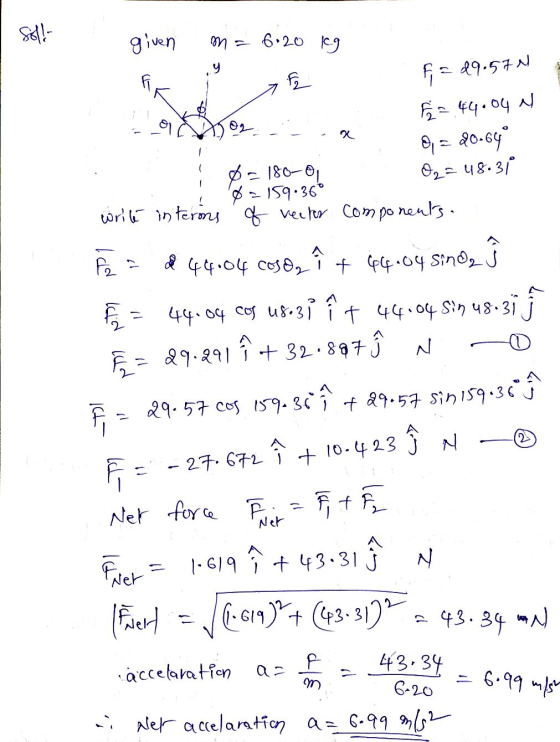 Sol!:-
given m = 6.20 kg
y
F₁
F₂
ϕ
θ₁
θ₂
x
F₁ = 29.57 N
F₂ = 44.04 N
θ₁ = 20.64°
θ₂ = 48.31°
ϕ = 180-θ₁
ϕ = 159.36°
write interms of vector components.
F̅₂ = 44.04 cosθ₂ î + 44.04 sinθ₂ ĵ
F̅₂ = 44.04 cos 48.31° î + 44.04 sin 48.31° ĵ
F̅₂ = 29.291 î + 32.887 ĵ N —①
F̅₁ = 29.57 cos 159.36° î + 29.57 sin 159.36° ĵ
F̅₁ = -27.672 î + 10.423 ĵ N —②
Net force F̅Net = F̅₁ + F̅₂
F̅Net = 1.619 î + 43.31 ĵ N
|F̅Net| = √(1.619)² + (43.31)² = 43.34 N
acceleration a = F/m = 43.34/6.20 = 6.99 m/s²
∴ Net acceleration a = 6.99 m/s²